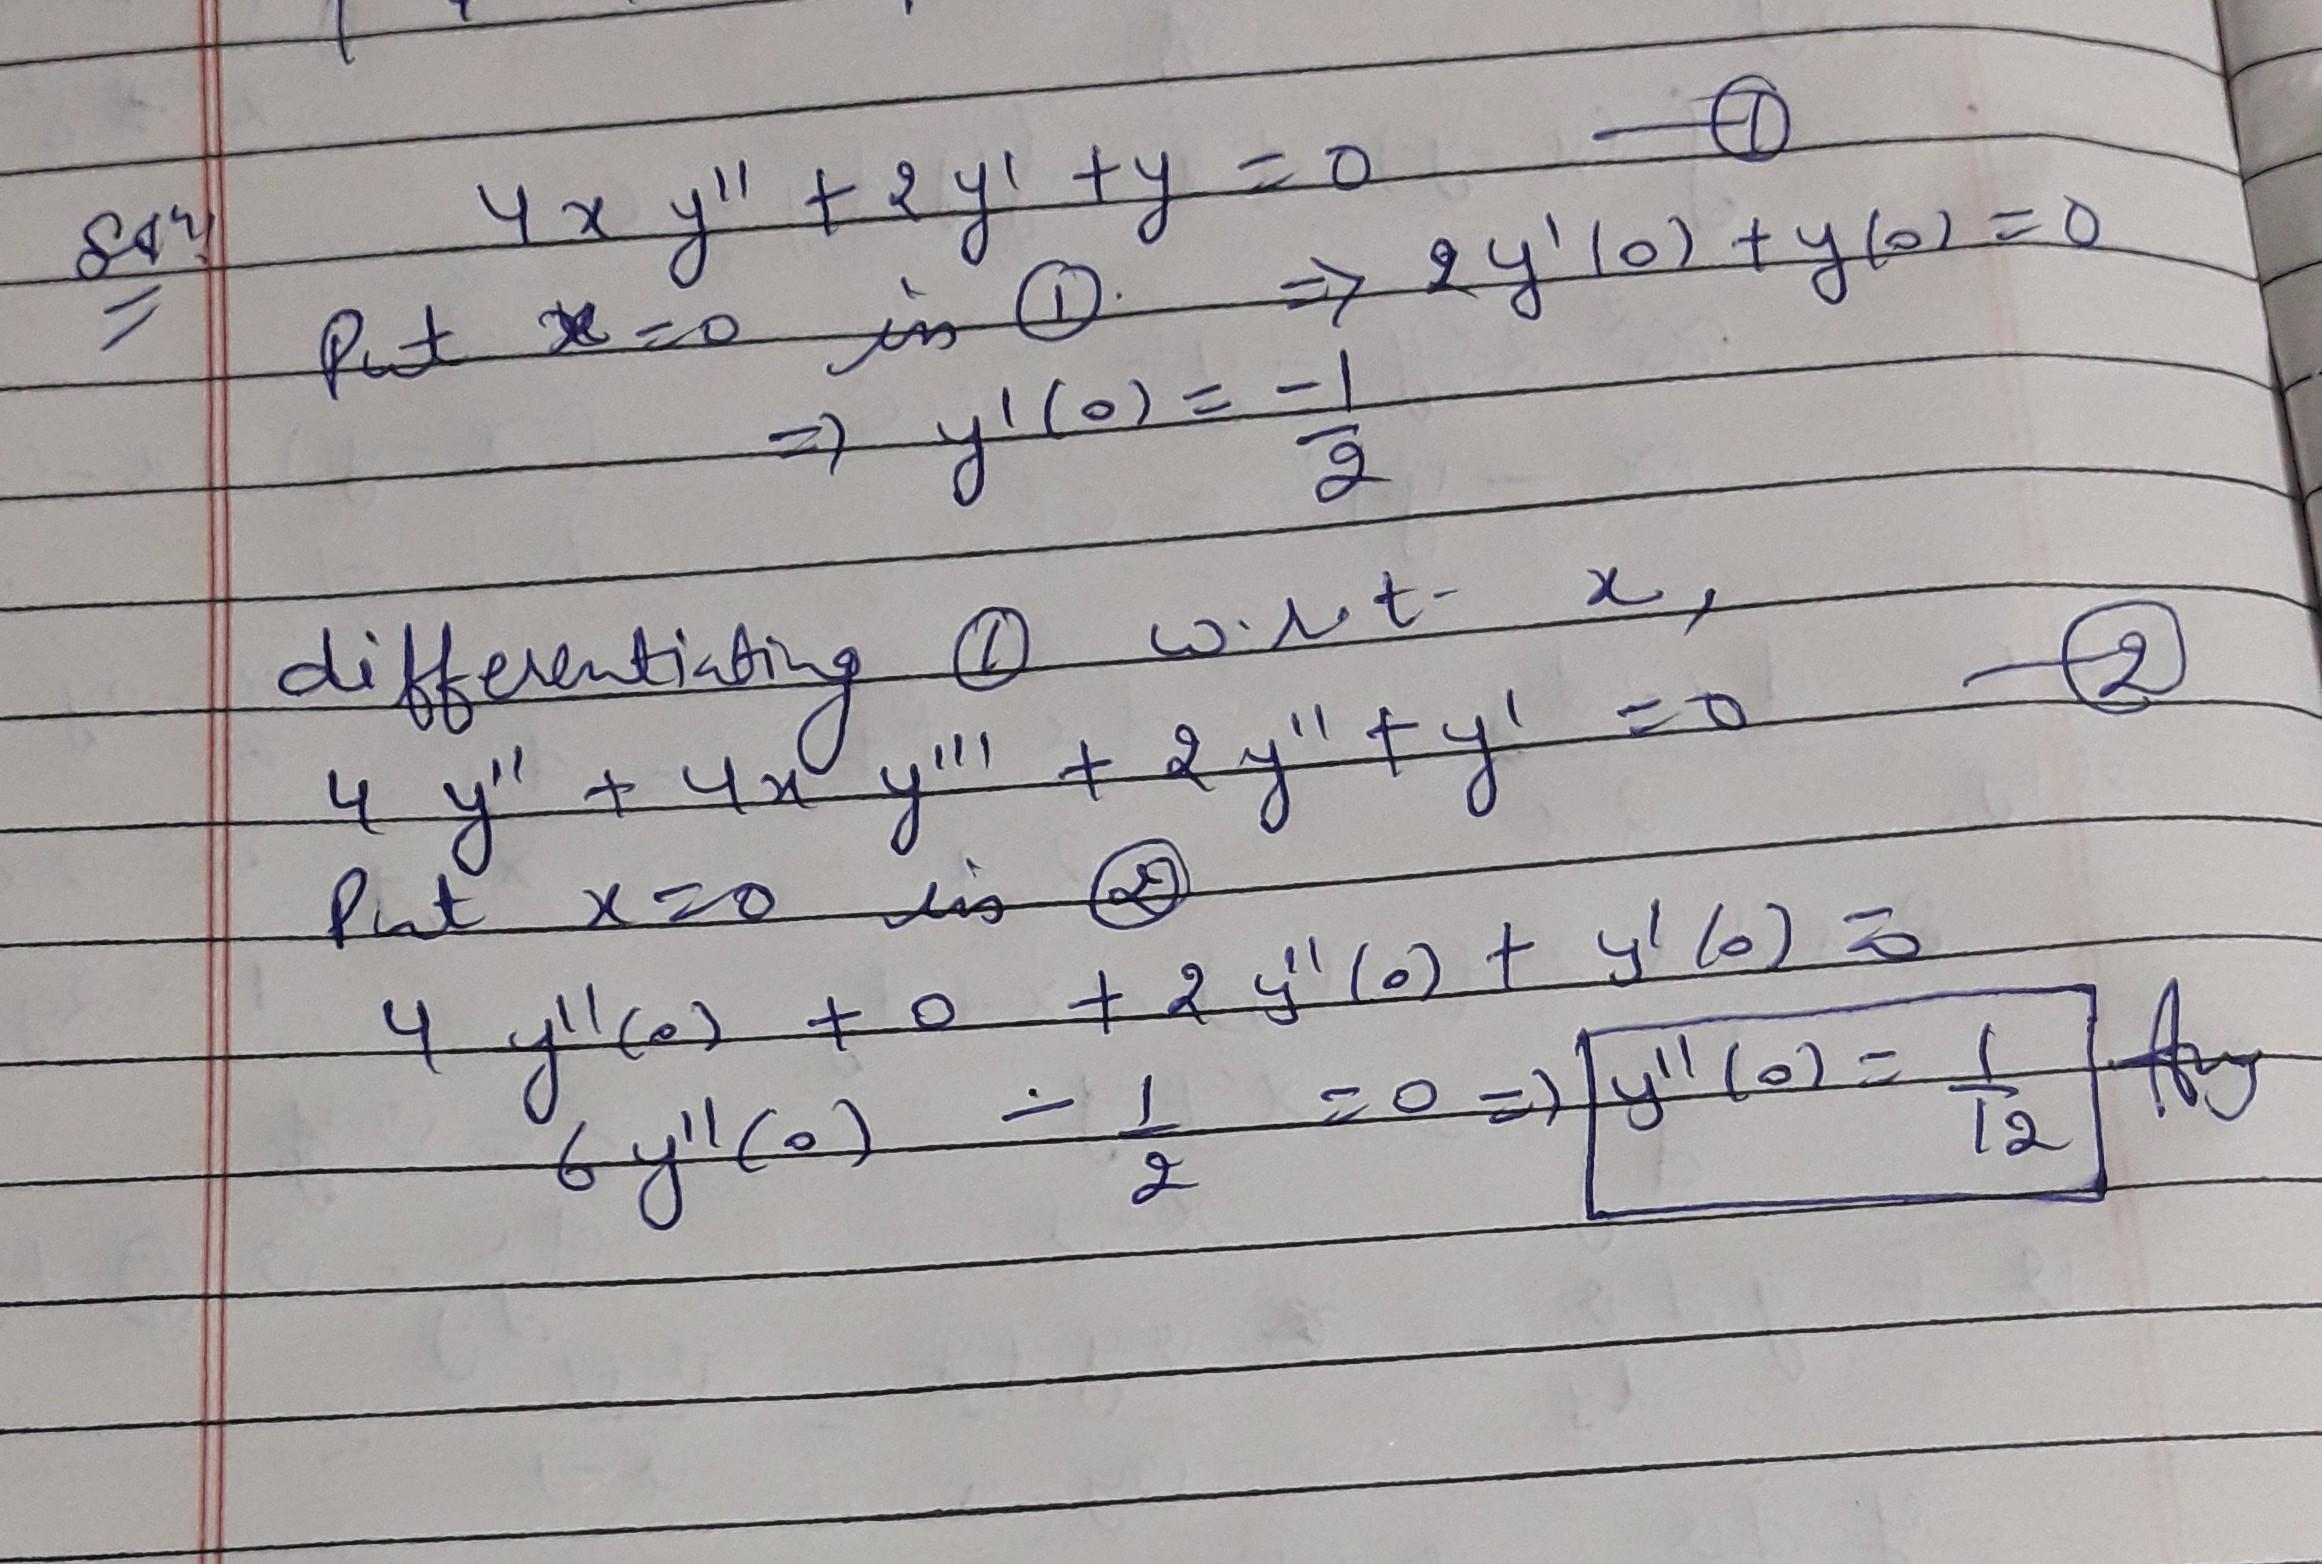 4x y'' + 2y' + y = 0 — ①
Solⁿ
Put x=0 in ①. ⇒ 2y'(0) + y(0) = 0
⇒ y'(0) = -1/2
differentiating ① w.r.t. x,
4 y'' + 4x y''' + 2y'' + y' = 0 — ②
Put x=0 in ②
4 y''(0) + 0 + 2 y''(0) + y'(0) = 0
6y''(0) - 1/2 = 0 ⇒ y''(0) = 1/12 Ans